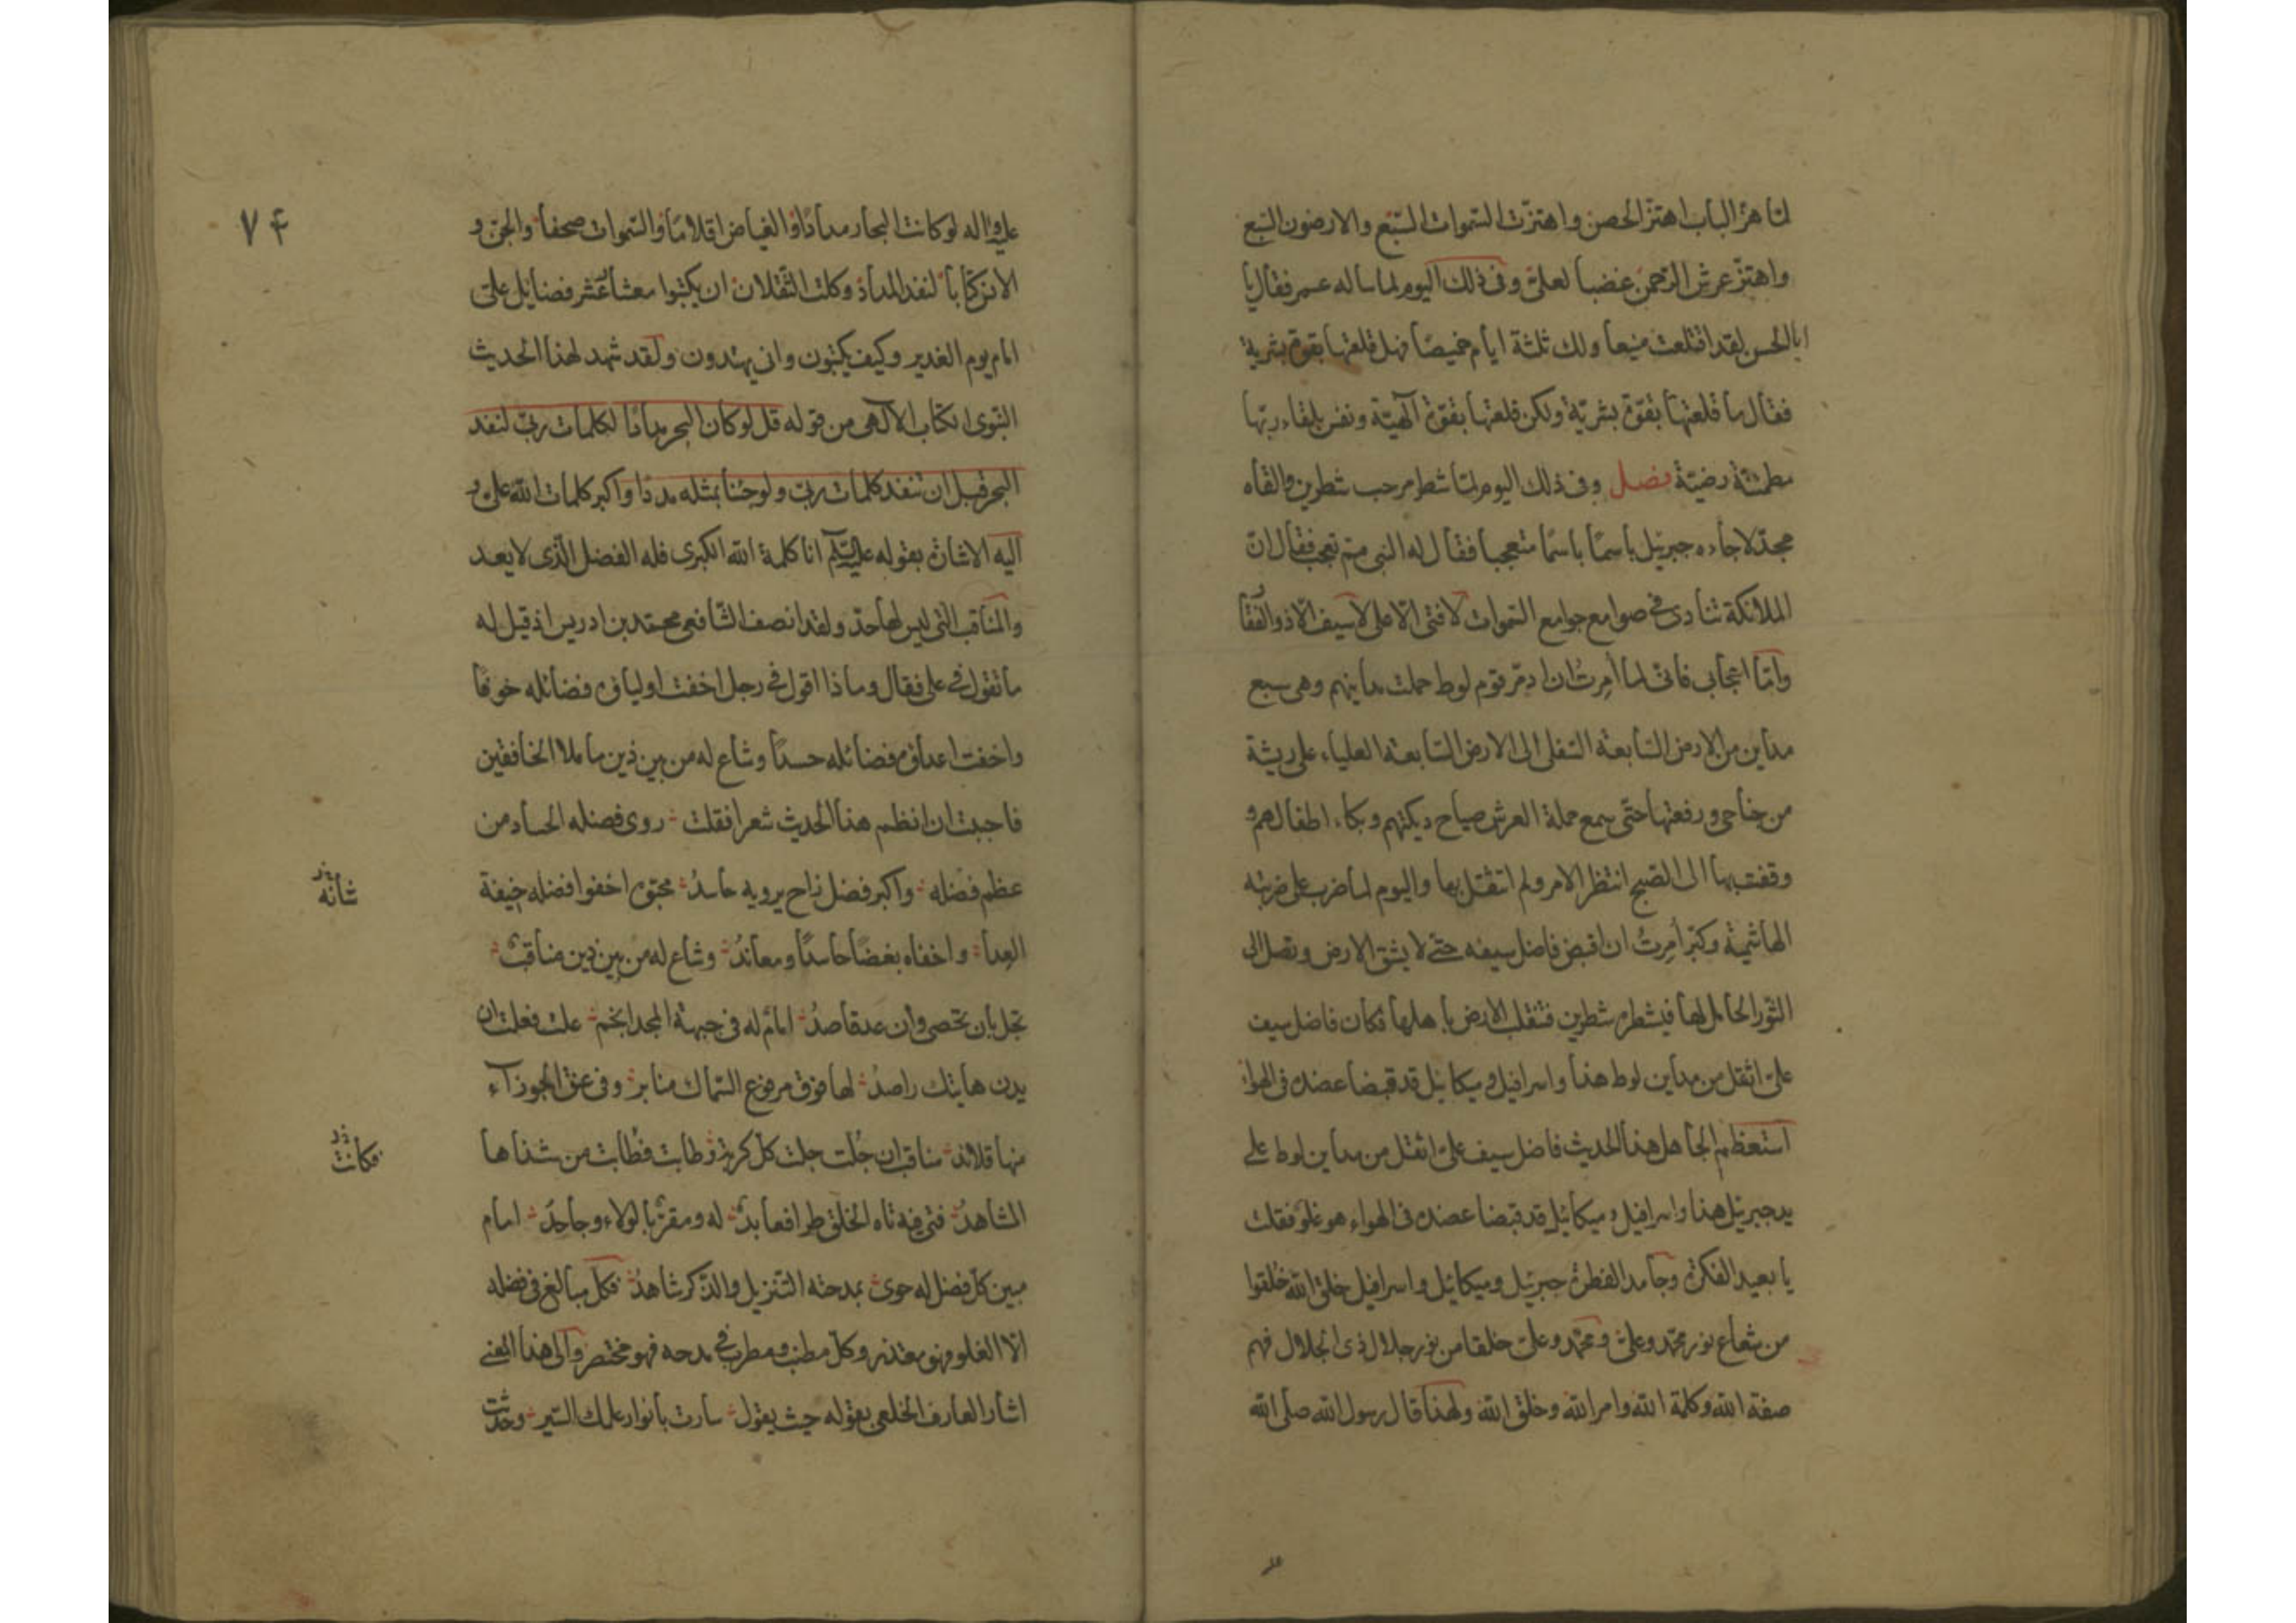 لما هز الباب اهتز الحصن واهتزت السموات السبع والارضون السبع
واهتز عرش الرحمن غضبا لعلي وفى ذلك اليوم لما ساله عمر فقال يا
ابا الحسن لقد اقتلعت منيعا ولك ثلثة ايام خميصا فهل قلعتها بقوة بشرية
فقال ما قلعتها بقوة بشرية ولكن قلعتها بقوة آلهية ونفس بلقاء ربها
مطمئنة رضية فصل وفى ذلك اليوم لما شطر مرحب شطرين والقاه
مجدلا جاءه جبرئيل باسما متعجبا فقال له النبى مم تعجب فقال ان
الملائكة تنادى فى صوامع جوامع السموات لا فتى الا على لا سيف الا ذو الفقا
واما اعجابى فانى لما أمرتُ ان ادمر قوم لوط حملت مداينهم وهى سبع
مداين من الارض السابعة السفلى الى الارض السابعة العلياء على ريشة
من جناحى ورفعتها حتى سمع حملة العرش صياح ديكتهم وبكاء اطفالهم و
وقفت بها الى الصبح انتظر الامر ولم اتثقل بها واليوم لما ضرب على ضربته
الهاشمية وكبر أمرتُ ان اقبض فاضل سيفه حتى لا يشق الارض وتصل الى
الثور الحامل لها فيشطره شطرين فتنقلب الارض باهلها فكان فاضل سيف
على اثقل من مداين لوط هذا واسرافيل وميكائيل قد قبضا عضده فى الهوا
استعظم الجاهل هذا الحديث فاضل سيف على اثقل من مداين لوط على
يد جبرئيل هذا واسرافيل وميكائيل قد قبضا عضده فى الهواء هو غلو فقلت
يا بعيد الفكرة وجامد الفطرة جبرئيل وميكائيل واسرافيل خلق الله خُلقوا
من شعاع نور محمد وعلى ومحمد وعلى خلقا من نور جلال ذى الجلال فهم
صفة الله وكلمة الله وامر الله وخلق الله ولهذا قال رسول الله صلى الله
٧۴
عليه واله لو كانت البحار مدادًا والغياض اقلامًا والسموات صحفا والجن و
الانس كتابا لنفد المداد وكلت الثقلان ان يكتبوا معشار عشر فضايل على
امام يوم الغدير وكيف يكتبون وانى يهتدون ولقد شهد لهذا الحديث
النبوى الكتاب الآلهى من قوله قل لو كان البحر مدادًا لكلمات ربى لنفد
البحر قبل ان تنفد كلمات ربى ولو جئنا بمثله مددًا واكبر كلمات الله على و
اليه الاشارة بقوله عليه السلم انا كلمة الله الكبرى فله الفضل الذى لا يعد
والمناقب التى ليس لها حد ولقد انصف الشافعى محمد بن ادريس اذ قيل له
ما تقول فى على فقال وماذا اقول فى رجل اخفت اولياؤه فضائله خوفًا
واخفت اعداؤه فضائله حسدًا وشاع له من بين ذين ما ملا الخافقين
فاحببت ان انظم هذا الحديث شعرا فقلت روى فضله الحساد من
عظم فضله واكبر فضل راح يرويه حاسدُ محبوه اخفوا فضله خيفة
شأنه
العدا واخفاه بغضًا حاسدًا ومعاندُ وشاع له من بين ذين مناقب
تجل بان تحصى وان عد قاصدُ امام له فى جبهة المجد انجم علت فعلت ان
يدن هاتيك راصدُ لها فوق مرفوع السماك منابر وفى عنق الجوزآء
منها قلائد مناقب ان جُلت جلت كل كربة وطابت فطابت من شذاها
فكانت
المشاهدُ فتى فيه تاه الخلق طرا فعابدُ له ومقر بالولاء وجاحدُ امام
مبين كل فضل له حوى بمدحته التنزيل والذكر شاهدُ فكل مبالغ فى فضله
الا الغلو فهو معتذر وكل مطنب ومطرب فى مدحه فهو مختصر والى هذا المعنى
اشار العارف الخلعى بقوله حيث يقول سارت بانوار علمك السير وحدثت